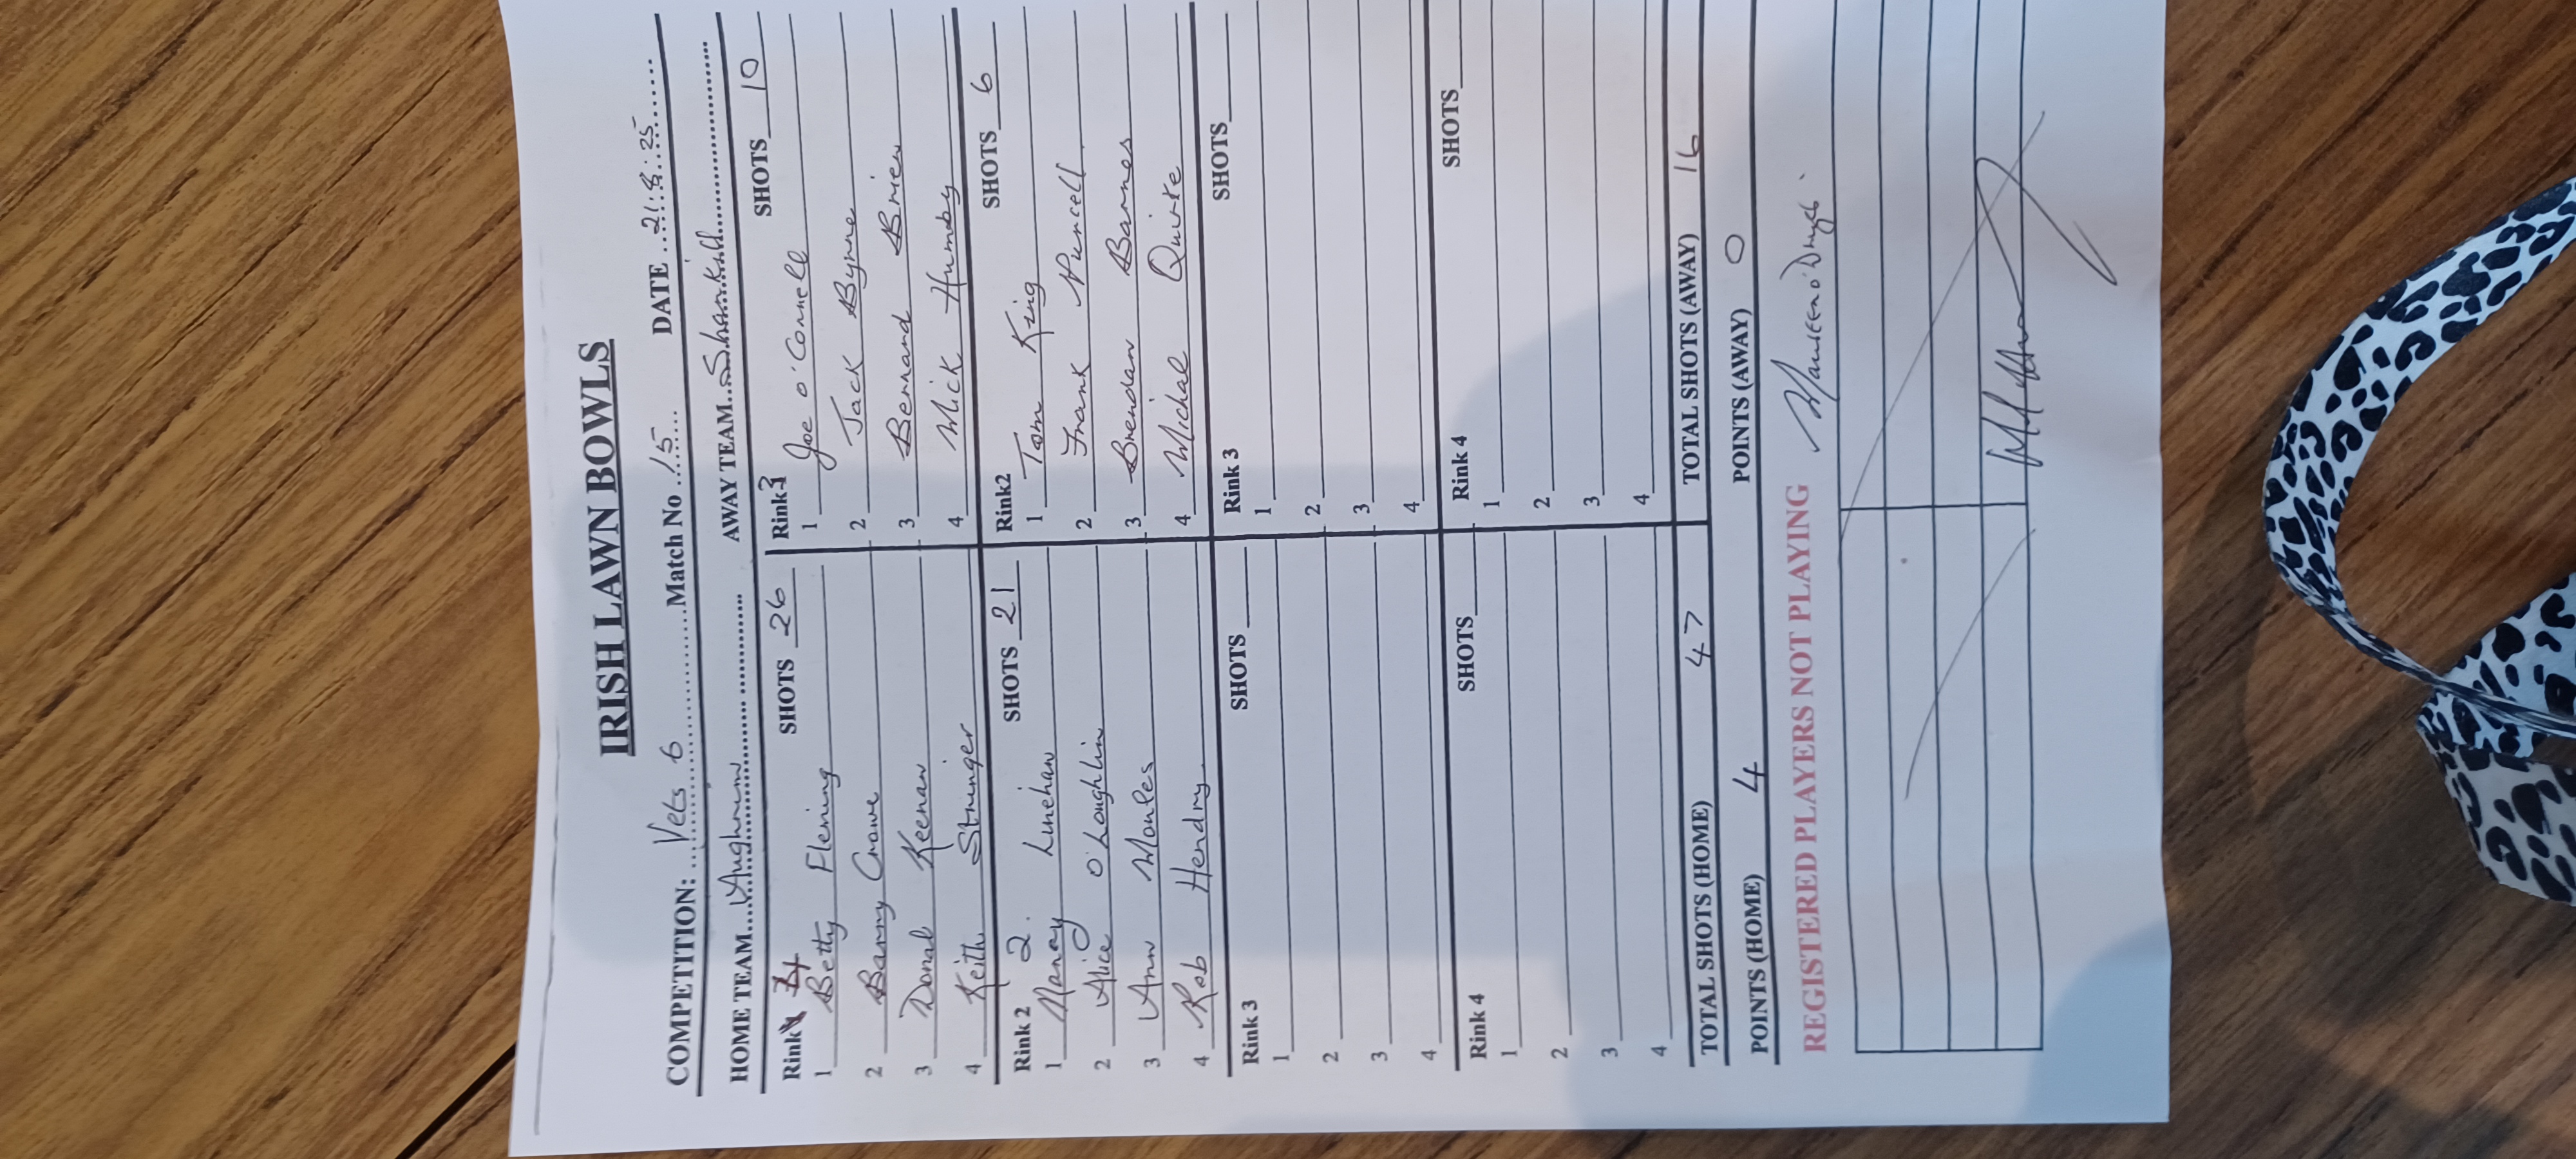 IRISH LAWN BOWLS
COMPETITION: Vets 6 Match No 15 DATE 21.8.25
HOME TEAM Aughrim AWAY TEAM Shankill
Rink SHOTS 26 Rink 3 SHOTS 10
1 Betty Fleming 1 Joe O'Connell
2 Barry Crowe 2 Jack Byrne
3 Donal Keenan 3 Bernard Brien
4 Keith Stringer 4 Mick Humby
Rink 2 2. SHOTS 21 Rink2 SHOTS 6
1 Linehan 1 Tom King
2 Alice O'Loughlin 2 Frank Purcell
3 Ann Moules 3 Brendan Barnes
4 Rob Hendry 4 Michal Quirke
Rink 3 SHOTS Rink 3 SHOTS
1 1
2 2
3 3
4 4
Rink 4 SHOTS Rink 4 SHOTS
1 1
2 2
3 3
4 4
TOTAL SHOTS (HOME) 47 TOTAL SHOTS (AWAY) 16
POINTS (HOME) 4 POINTS (AWAY) 0
REGISTERED PLAYERS NOT PLAYING